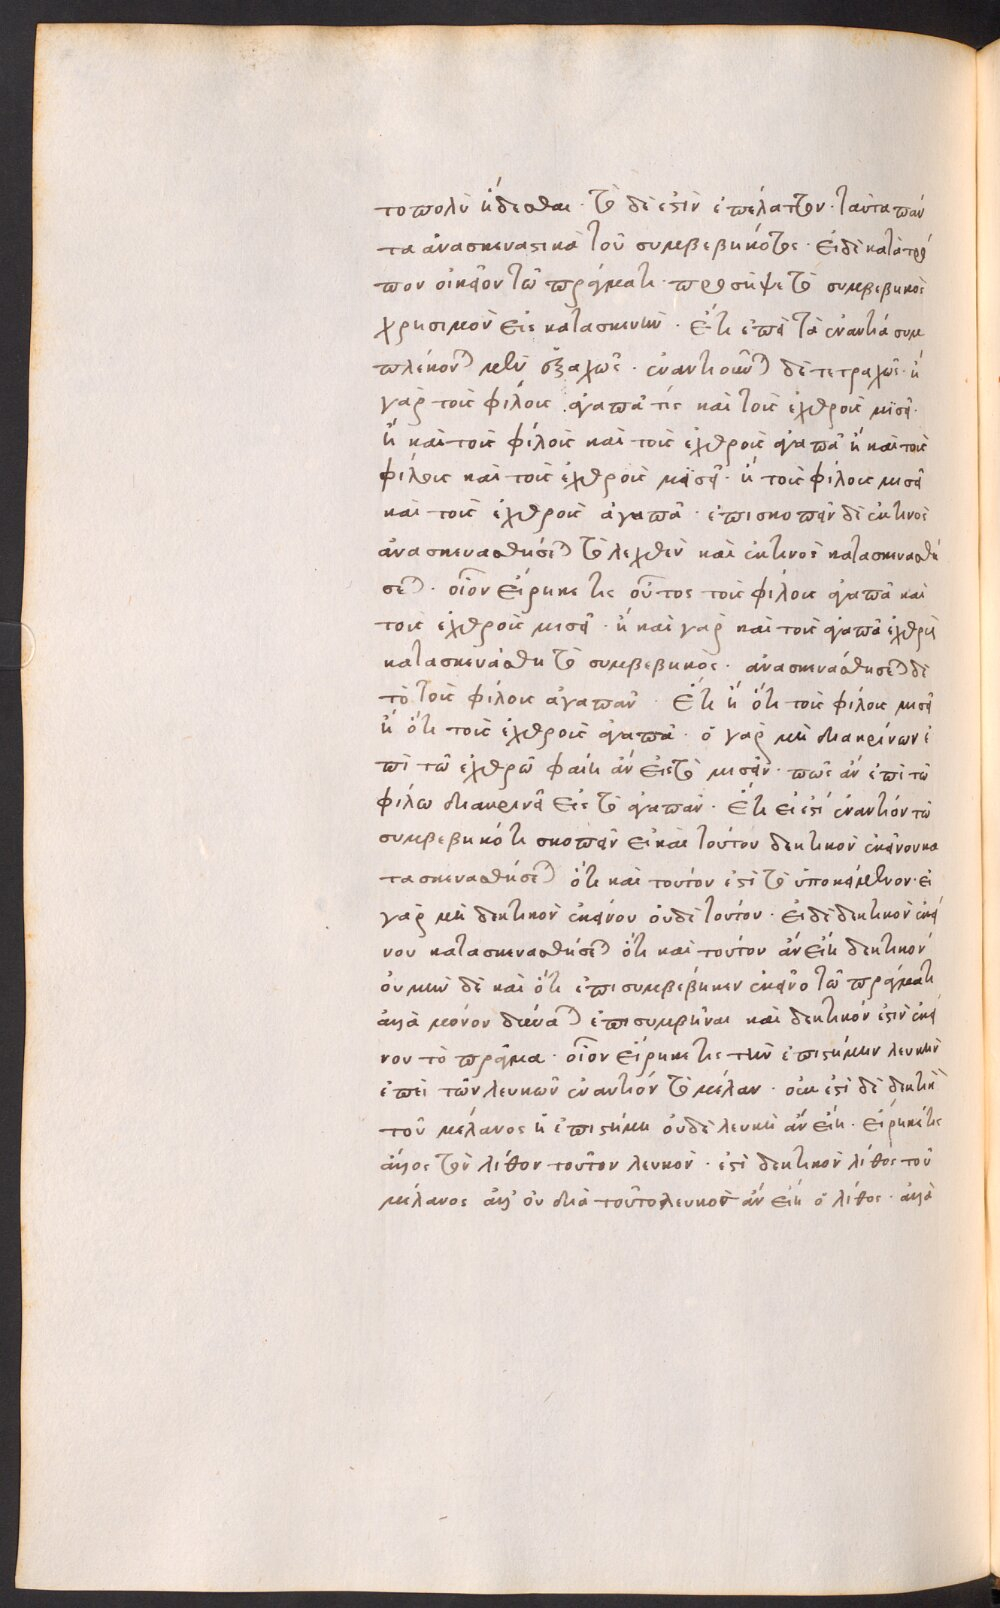 τοπολὺ ἥδεσθαι· τὸ δέ ἐστιν ἐπέλαττον· ταῦτα πάν
τα ἀνασκευαστικὰ τοῦ συμβεβηκότος· εἰ δὲ κατὰ τρό
πον οἰκεῖον τῶ πράγματι προσῆψε τὸ συμβεβηκὸς
χρήσιμον εἰς κατασκευήν· ἔτι ἐπεὶ τὰ ἐναντία συμ
πλέκονται μὲν ἑξαχῶς· ἐναντιοῦνται δὲ τετραχῶς· ἢ
γὰρ τοὺς φίλους ἀγαπᾶ τις καὶ τοὺς ἐχθροὺς μισεῖ·
ἢ καὶ τοὺς φίλους καὶ τοὺς ἐχθροὺς ἀγαπᾶ ἢ καὶ τοὺς
φίλους καὶ τοὺς ἐχθροὺς μισεῖ· ἢ τοὺς φίλους μισεῖ
καὶ τοὺς ἐχθροὺς ἀγαπᾶ· ἐπισκοπεῖν δὲ ἐκ τίνος
ἀνασκευασθήσεται τὸ λεχθὲν καὶ ἐκ τίνος κατασκευασθή
σεται· οἷον εἴρηκέ τις οὗτος τοὺς φίλους ἀγαπᾶ καὶ
τοὺς ἐχθροὺς μισεῖ· ἢ καὶ γὰρ καὶ τοὺς ἀγαπᾶ ἐχθροὺς
κατασκευάσθη τὸ συμβεβηκός· ἀνασκευάσθησεται δὲ
τὸ τοὺς φίλους ἀγαπᾶν· ἔτι ἢ ὅτι τοὺς φίλους μισεῖ
ἢ ὅτι τοὺς ἐχθροὺς ἀγαπᾶ· ὁ γὰρ μὴ διακρίνων ἐ
πὶ τῶ ἐχθρῶ φαίη ἂν εἰς τὸ μισεῖν· πῶς ἂν ἐπὶ τῶ
φίλω διακρινεῖ εἰς τὸ ἀγαπᾶν· ἔτι εἰ ἐστὶ ἐναντίον τῶ
συμβεβηκότι σκοπεῖν εἰ καὶ τούτου δεκτικὸν ἐκεῖνου κα
τασκευασθήσεται ὅτι καὶ τούτου ἐστὶ τὸ ὑποκείμενον· εἰ
γὰρ μὴ δεκτικὸν ἐκείνου οὐδὲ τούτου· εἰ δὲ δεκτικὸν ἐκεί
νου κατασκευασθήσεται ὅτι καὶ τούτου ἂν εἴη δεκτικόν
οὐ μὴν δὲ καὶ ὅτι ἐπισυμβεβήκεν ἐκεῖνο τῶ πράγματι
ἀλλὰ μόνον δύναται ἐπισυμβῆναι καὶ δεκτικόν ἐστιν ἐκεί
νου τὸ πρᾶγμα· οἷον εἴρηκέ τις τὴν ἐπιστήμην λευκὴν
ἐπεὶ τῶν λευκῶν ἐναντίον τὸ μέλαν· οὐκ ἐστὶ δὲ δεκτικὴ
τοῦ μέλανος ἡ ἐπιστήμη οὐδὲ λευκὴ ἂν εἴη· εἴρηκέ τις
ἄλλος τὸν λίθον τοῦτον λευκόν· ἐστὶ δεκτικὸν λίθος τοῦ
μέλανος ἀλλ' οὐ διὰ τοῦτο λευκὸν ἂν εἴη ὁ λίθος· ἀλλὰ